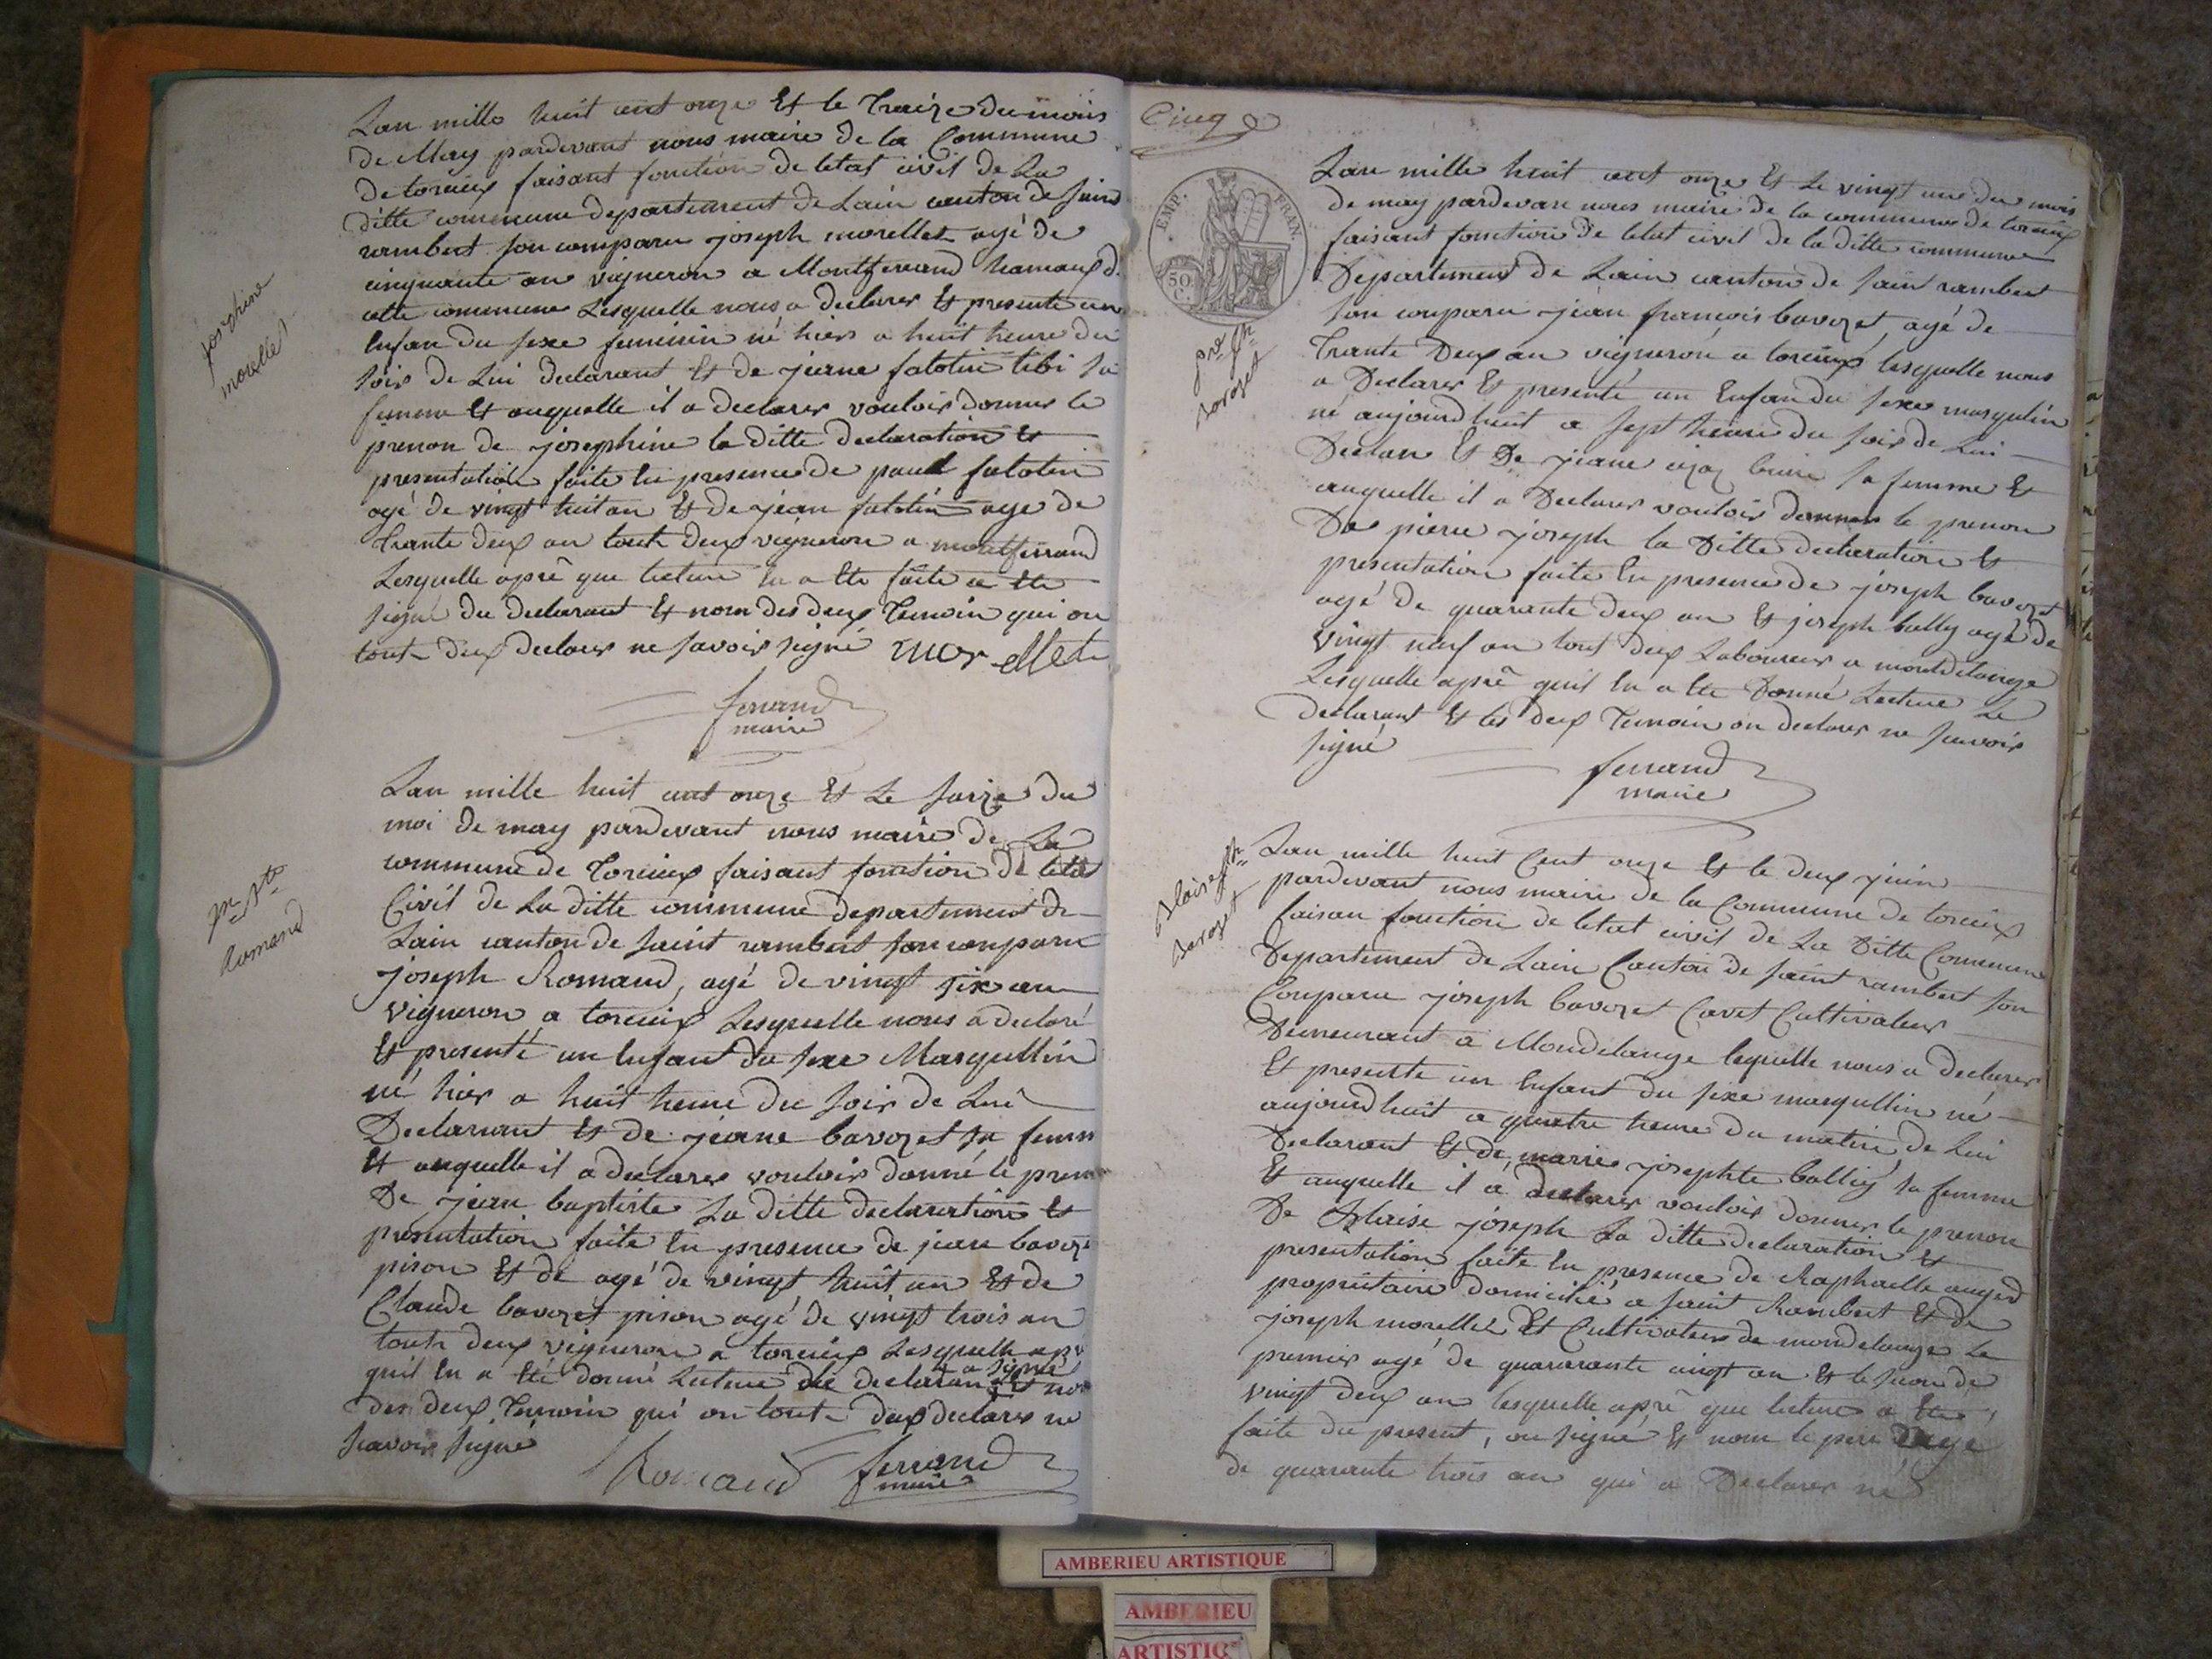 josephine
morellet
Lan mille huit cent onze Et le Traize du mois
de May pardevant nous maire de la Commune
de torcieux faisant fonction de letat civil de La
ditte commune departement de Lain canton de Saint
rambert son comparu joseph morellet agé de
cinquante an vigneron a Montferrand hameaux d
cette commune Lesquelle nous a declarer Et presenté un
Enfan du sexe feminin né hier a huit heure du
soir de Lui declarant Et de jeane falotin sa
femme Et auquelle il a declarer vouloir donner le
prenon de josephine la ditte declaration Et
presentation faite En presence de paul falotin
agé de vingt huit an Et de jean falotin age de
Trante deux an tout deux vigneron a montferrand
Lesquelle aprê que lecture En a Ete faite a Ete
signé du declarant Et non des deux Temoin qui on
tout deux declarer ne savoir signé morellet
ferrand
maire
jn Bte
Romand
Lan mille huit cent onze Et Le saize du
moi de may pardevant nous maire de La
commune de Torcieux faisant fonction de letat
Civil de La ditte commune departement de
Lain canton de saint rambert son comparu
joseph Romand, agé de vingt six an
vigneron a torcieux Lesquelle nous a declaré
Et presenté un Enfant du sexe Masqullin
né hier a huit heure du soir de Lui
Declarant Et de jeane bavozet sa femm
Et auquelle il a declarer vouloir donné le pren
De jean baptiste La ditte declaration Et
presentation faite En presence de jean bavoz
pison Et de agé de vingt huit an Et de
Claude bavozet pison agé de vingt trois an
tout deux vigneron a torcieux Lesquelle apr
quil En a Eté donné Lecture du declaran a signé Et no
des deux Temoin qui on tout deux declarer ne
scavoir signé
Romand ferrand
maire
Cinq
EMP. FRAN.
50 C.
pre jph
bavozet
Lan mille huit cent onze Et Le vingt une du mois
de may pardevan nous maire de la commune de torcieux
faisant fonction de letat civil de la ditte commune
Departement de Lain canton de saint rambert
son conparu jean francois bavozet, agé de
Trante Deux an vigneron a torcieux lesquelle nous
a Declarer Et presenté un Enfan du sexe masqulin
né aujourdhuit a sept heure du soir de Lui
Declan Et De jeane sa femme Et
auquelle il a Declarer vouloir donner le prenon
De piere joseph la Ditte declaration Et
presentation faite En presence de joseph bavozet
agé de quarante deux an Et joseph bally agé de
vingt neuf an tout deux Laboureur a mondelange
Lesquelle aprê quil En a Ete Donné Lecture Le
declarant Et les deux Temoin on declarer ne scavoir
signé
ferrand
maire
blaise jph
bavozet
Lan mille huit Cent onze Et le deux juin
pardevant nous maire de la Commune de torcieux
faisan fonction de letat civil de La Ditte Commune
Departement de Lain Canton de saint rambert son
Conparu joseph bavozet Cavet Cultivateur
Demeurant a Mondelange lequelle nous a declarer
Et presente un Enfant du sexe masqullin né
aujourdhuit a quatre heure du matin de Lui
Declarant Et de marie josephte ballij sa femme
Et auquelle il a declarer vouloir donner le prenon
De Blaise joseph La ditte declaration Et
presentation faite En presence de Raphaelle auger
propriétaire domicilié a saint Rambert Et de
joseph morellet Et Cultivateur de mondelange Le
premier agé de quararante cinqt an Et le second de
vingt deux an lesquelle aprê que lecture a Ete
faite du present, on signé Et nom le pere age
de quarante trois an qui a Declarer né
AMBERIEU ARTISTIQUE
AMBERIEU
ARTISTIQ